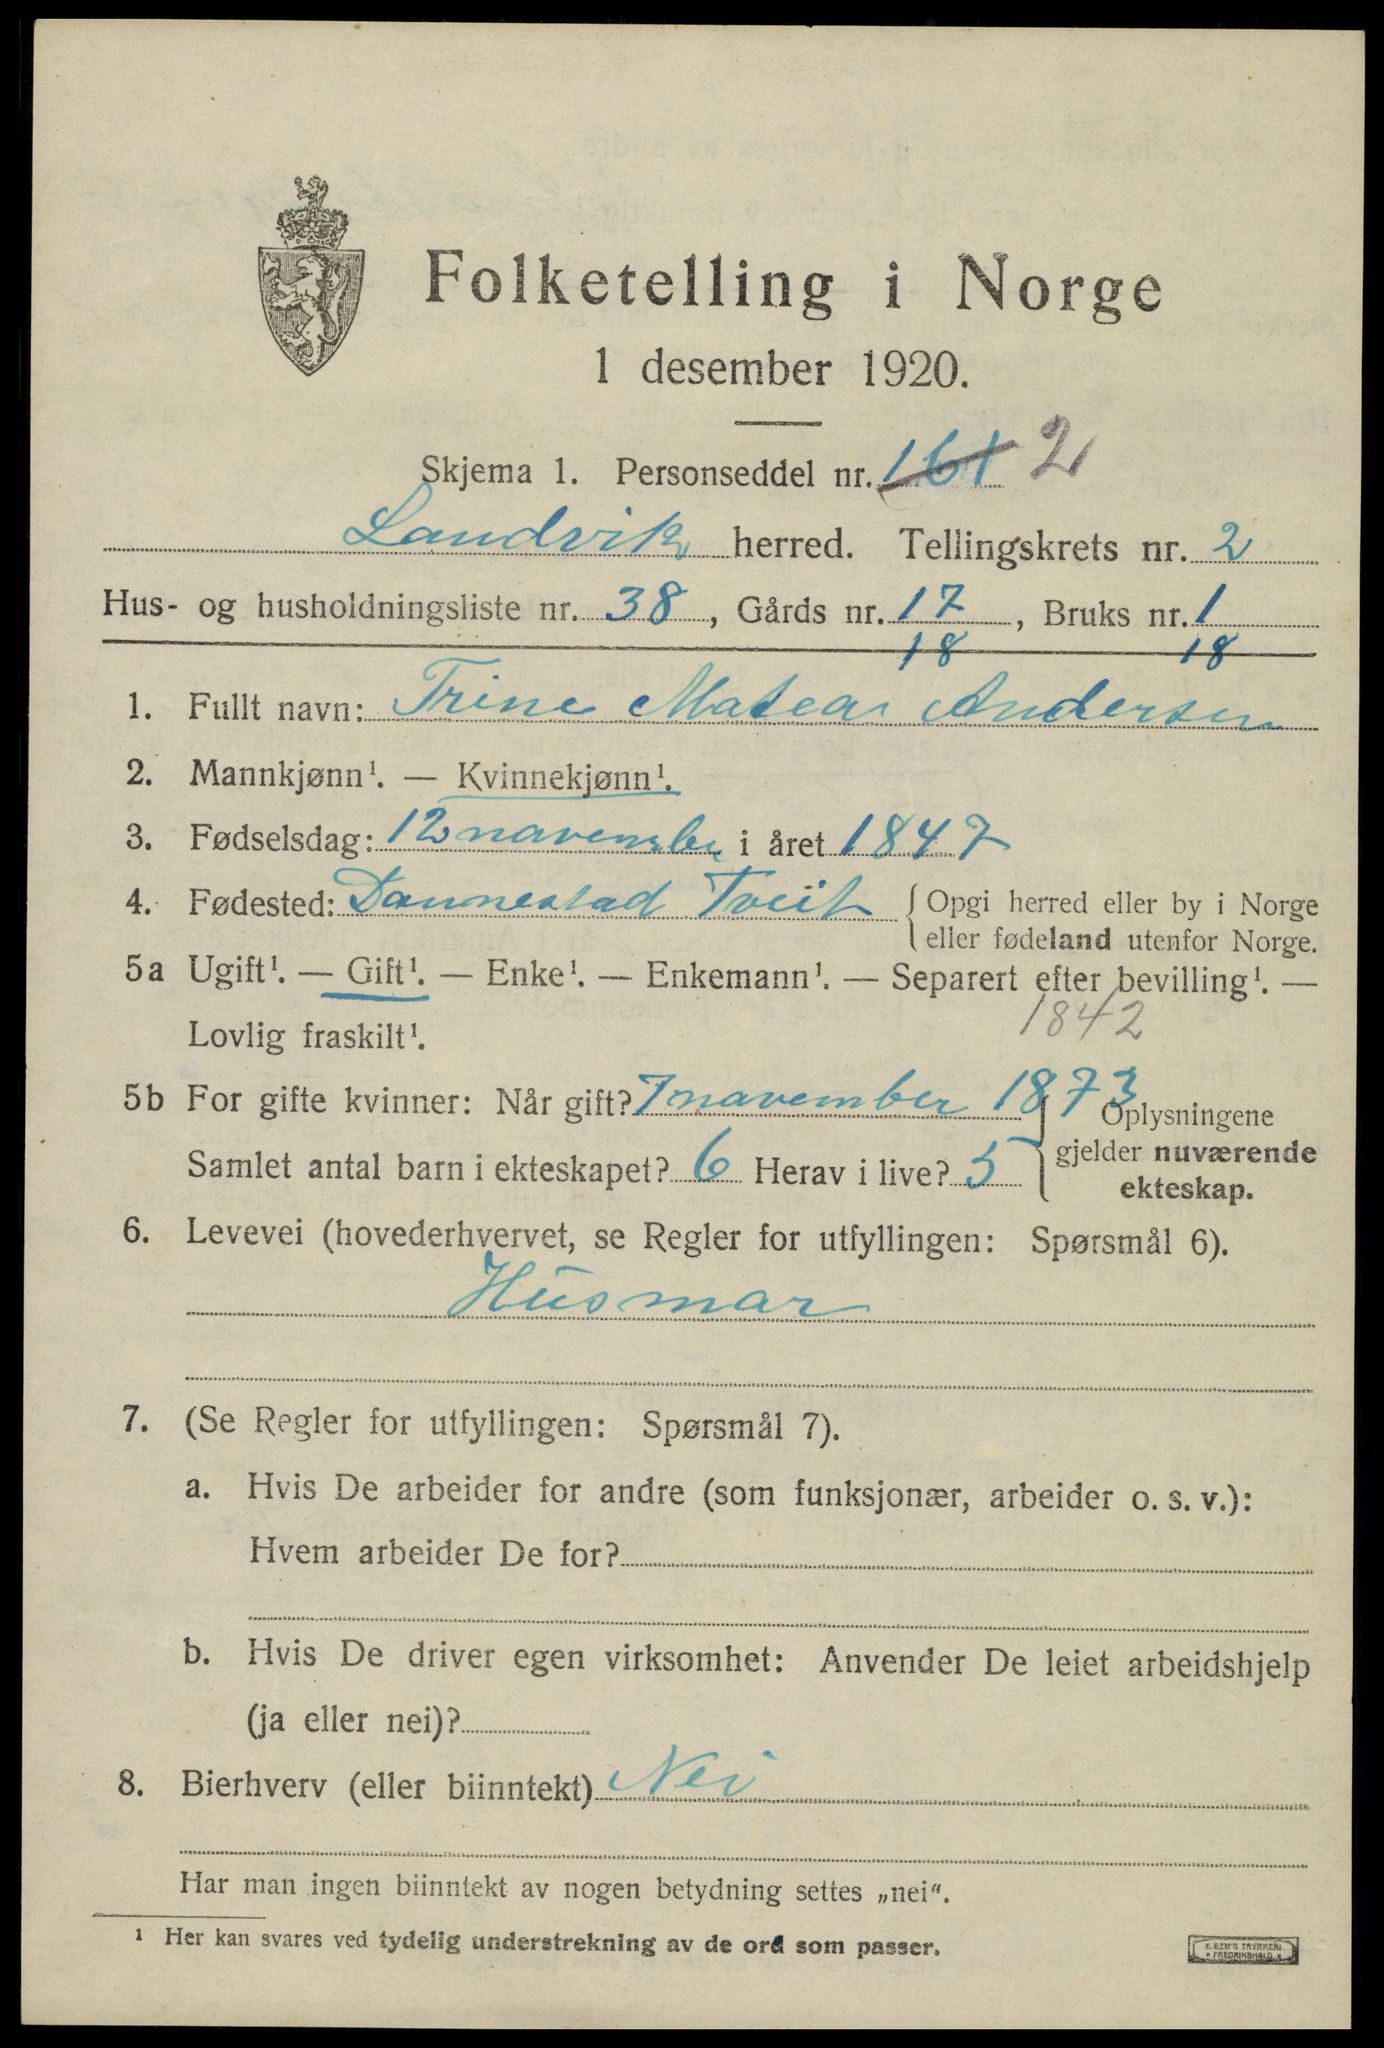 Folketelling i Norge
1 desember 1920.
Skjema 1. Personseddel nr. 161 2
Landvik herred. Tellingskrets nr. 2
Hus- og husholdningsliste nr. 38, Gårds nr. 17, Bruks nr. 1
18 18
1. Fullt navn: Trine Matea Andersen
2. Mannkjønn¹. — Kvinnekjønn¹.
3. Fødselsdag: 12 november i året 1847
4. Fødested: Dannestad Tveit { Opgi herred eller by i Norge
eller fødeland utenfor Norge.
5a Ugift¹. — Gift¹. — Enke¹. — Enkemann¹. — Separert efter bevilling¹. —
1842
Lovlig fraskilt¹.
5b For gifte kvinner: Når gift? 7 november 1873 } Oplysningene
Samlet antal barn i ekteskapet? 6 Herav i live? 5 gjelder nuværende
ekteskap.
6. Levevei (hovederhvervet, se Regler for utfyllingen: Spørsmål 6).
Husmor
7. (Se Regler for utfyllingen: Spørsmål 7).
a. Hvis De arbeider for andre (som funksjonær, arbeider o. s. v.):
Hvem arbeider De for?
b. Hvis De driver egen virksomhet: Anvender De leiet arbeidshjelp
(ja eller nei)?
8. Bierhverv (eller biinntekt) Nei
Har man ingen biinntekt av nogen betydning settes „nei“.
¹ Her kan svares ved tydelig understrekning av de ord som passer.
E. SEM'S TRYKKERI
FREDRIKSHALD